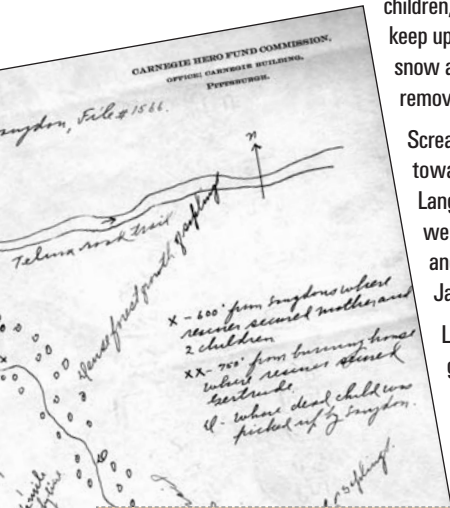 children,
keep up
snow a
remov
Screa
towa
Lang
we
an
Ja
L
g
CARNEGIE HERO FUND COMMISSION,
OFFICE: CARNEGIE BUILDING,
PITTSBURGH.
File #1566.
n
road trail
Dense forest growth of sapling
x - 600' from Langdons where
rescuer secured mother and
2 children
xx - 750' from burning house
where rescuer secured
Gertrude
where dead child was
picked up by Langdon.